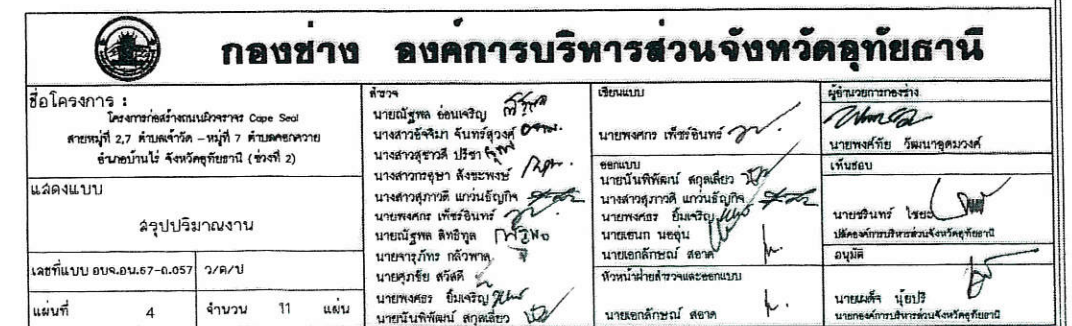 กองช่าง องค์การบริหารส่วนจังหวัดอุทัยธานี
ชื่อโครงการ :
โครงการก่อสร้างถนนผิวจราจร Cape Seal
สายหมู่ที่ 2,7 ตำบลเจ้าวัด -หมู่ที่ 7 ตำบลคอกควาย
อำเภอบ้านไร่ จังหวัดอุทัยธานี (ช่วงที่ 2)
แสดงแบบ
สรุปปริมาณงาน
เลขที่แบบ อบจ.อน.67-ถ.057
ว/ด/ป
แผ่นที่ 4
จำนวน 11 แผ่น
สำรวจ
นายณัฐพล อ่อนเจริญ
นางสาวอัจจิมา จันทร์สุวงศ์
นางสาวสุชาวดี ปรีชา
นางสาวกรอุษา สังขะพงษ์
นางสาวสุภาวดี แกว่นธัญกิจ
นายพงศกร เพ็ชรอินทร์
นายณัฐพล สิทธิทูล
นายจารุภัทร กลัวพาล
นายศุภชัย สวัสดี
นายพงศธร ยิ้มเจริญ
นายนันทิพัฒน์ สกุลเสี่ยว
เขียนแบบ
นายพงศกร เพ็ชรอินทร์
ออกแบบ
นายนันทิพัฒน์ สกุลเสี่ยว
นางสาวสุภาวดี แกว่นธัญกิจ
นายพงศธร ยิ้มเจริญ
นายเธนก นออุ่น
นายเอกลักษณ์ สอาด
หัวหน้าฝ่ายสำรวจและออกแบบ
นายเอกลักษณ์ สอาด
ผู้อำนวยการกองช่าง
นายพงศ์ทัย วัฒนาอุดมวงศ์
เห็นชอบ
นายชรินทร์
ปลัดองค์การบริหารส่วนจังหวัดอุทัยธานี
อนุมัติ
นายเผด็จ นุ้ยปรี
นายกองค์การบริหารส่วนจังหวัดอุทัยธานี